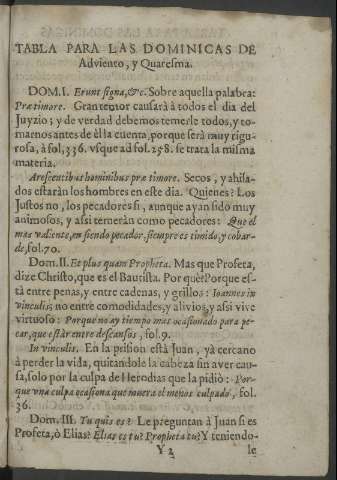 TABLA PARA LAS DOMINICAS DE
Adviento, y Quaresma.
DOM. I. Erunt signa, &c. Sobre aquella palabra:
Præ timore. Gran temor causarà à todos el dia del
Juyzio; y de verdad debemos temerle todos, y to-
marnos antes de èl la cuenta, porque serà muy rigu-
rosa, à fol. 336. vsque ad fol. 258. se trata la misma
materia.
Arescentibus hominibus præ timore. Secos, y ahila-
dos estaràn los hombres en este dia. Quienes? Los
Justos no, los pecadores sì, aunque ayan sido muy
animosos, y assi temeràn como pecadores: Que el
mas valiente, en siendo pecador, siempre es timido, y cobar-
de, fol. 70.
Dom. II. Et plus quam Propheta. Mas que Profeta,
dize Christo, que es el Bautista. Por què? Porque es-
tà entre penas, y entre cadenas, y grillos: Ioannes in
vinculis; no entre comodidades, y alivios, y assi vive
virtuoso: Porque no ay tiempo mas ocasionado para pe-
car, que estàr entre descansos, fol. 9.
In vinculis. En la prision està Juan, yà cercano
à perder la vida, quitandole la cabeza sin aver cau-
sa, solo por la culpa de Herodias que la pidiò: Por-
que vna culpa ocasiona que muera el menos culpado, fol.
36.
Dom. III. Tu quis es? Le preguntan à Juan si es
Profeta, ò Elias? Elias es tu? Propheta tu? Y teniendo-
Y 2 le